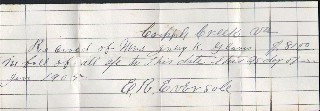 Cripple Creek Va
Received of Mrs. July K. $8.00
In full of all up to this date This 25 day of
Jan 1905
C. R. Eversole